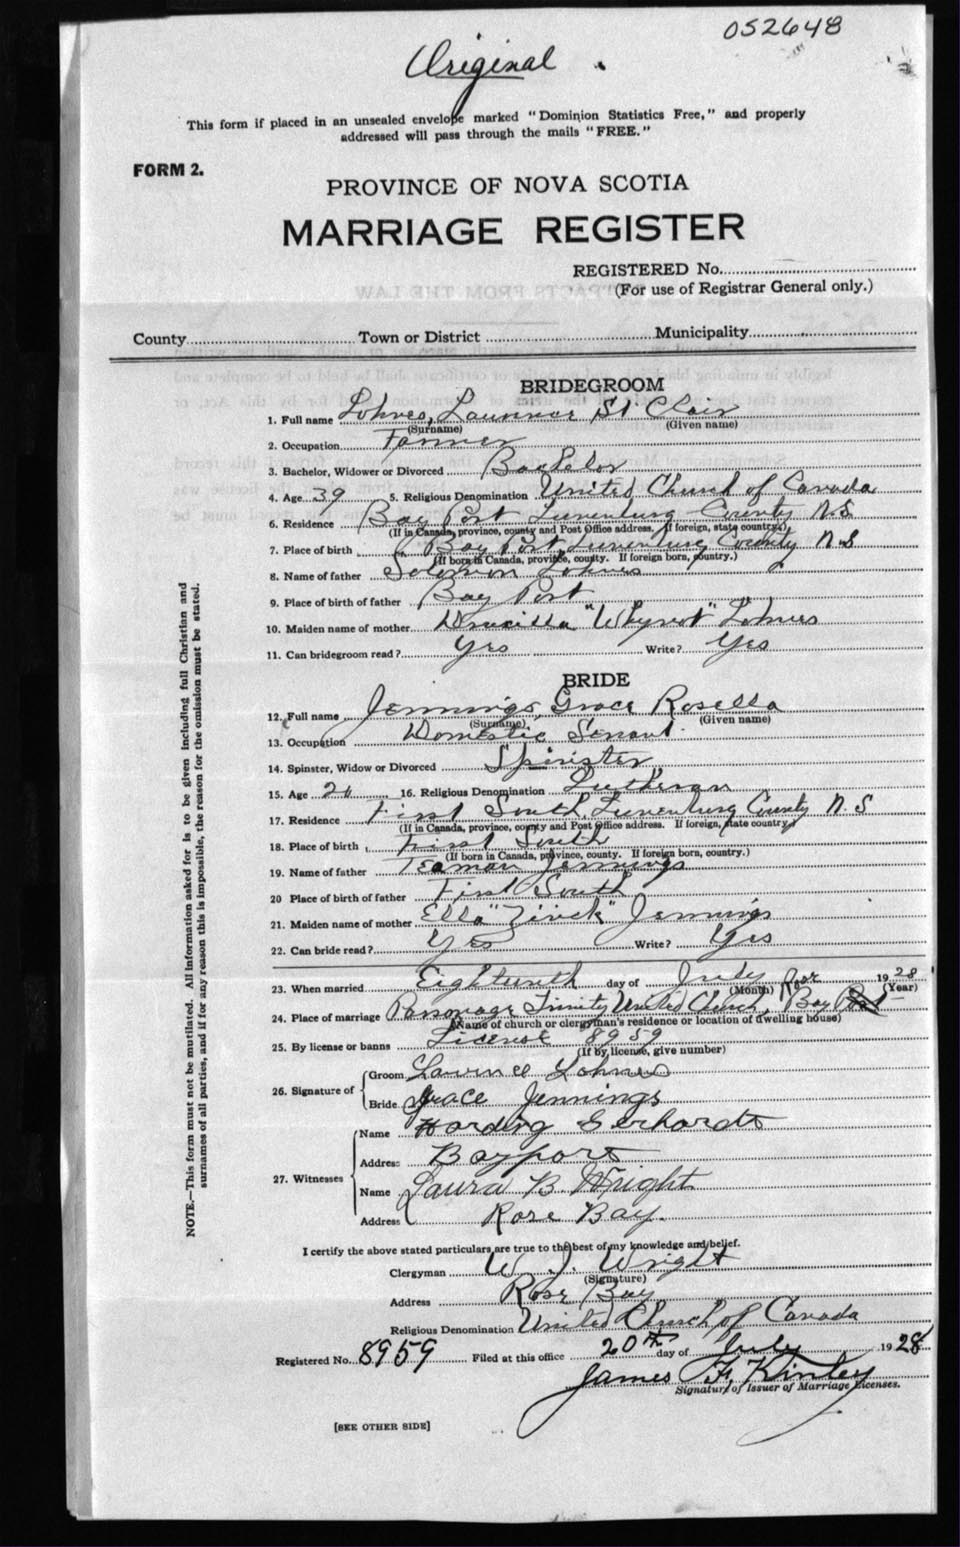 052648
Original
This form if placed in an unsealed envelope marked "Dominion Statistics Free," and properly
addressed will pass through the mails "FREE."
FORM 2.
PROVINCE OF NOVA SCOTIA
MARRIAGE REGISTER
REGISTERED No.
(For use of Registrar General only.)
County Town or District Municipality
BRIDEGROOM
1. Full name Lohnes, Lawrence St Clair
(Surname) (Given name)
2. Occupation Farmer
3. Bachelor, Widower or Divorced Bachelor
4. Age 39 5. Religious Denomination United Church of Canada
6. Residence Bay Port Lunenburg County N.S.
(If in Canada, province, county and Post Office address. If foreign, state country.)
7. Place of birth Bay Port, Lunenburg County N.S
(If born in Canada, province, county. If foreign born, country.)
8. Name of father Solomon Lohnes
9. Place of birth of father Bay Port
10. Maiden name of mother Drucilla "Whynot" Lohnes
11. Can bridegroom read? Yes Write? Yes
BRIDE
12. Full name Jennings, Grace Rosella
(Surname) (Given name)
13. Occupation Domestic Servant.
14. Spinster, Widow or Divorced Spinster
15. Age 16. Religious Denomination Lutheran
17. Residence First South, Lunenburg County N.S
(If in Canada, province, county and Post Office address. If foreign, state country.)
18. Place of birth First South
(If born in Canada, province, county. If foreign born, country.)
19. Name of father Jennings
20 Place of birth of father First South
21. Maiden name of mother Ella "Zinck" Jennings
22. Can bride read? Yes Write? Yes
23. When married Eighteenth day of July 1928
(Month) (Year)
Rose
24. Place of marriage Parsonage Trinity United Church, Bay Port
(Name of church or clergyman's residence or location of dwelling house)
25. By license or banns License 8959
(If by license, give number)
26. Signature of Groom Lawrence Lohnes
Bride Grace Jennings
27. Witnesses
Name Harding Gerhardt
Address Bayport
Name Laura B Wright
Address Rose Bay.
I certify the above stated particulars are true to the best of my knowledge and belief.
Clergyman W. J. Wright
(Signature)
Address Rose Bay
Religious Denomination United Church of Canada
Registered No. 8959 Filed at this office 20th day of July 1928
James F. Kinley
Signature of Issuer of Marriage Licenses.
[SEE OTHER SIDE]
NOTE.—This form must not be mutilated. All information asked for is to be given including full Christian and
surnames of all parties, and if for any reason this is impossible, the reason for the omission must be stated.